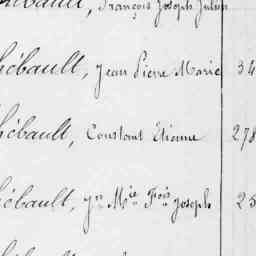 François Joseph Julien
hébault, Jean Pierre Marie 34
hébault, Constant Etienne 278
hébault, Jn Mie Fois Joseph 25